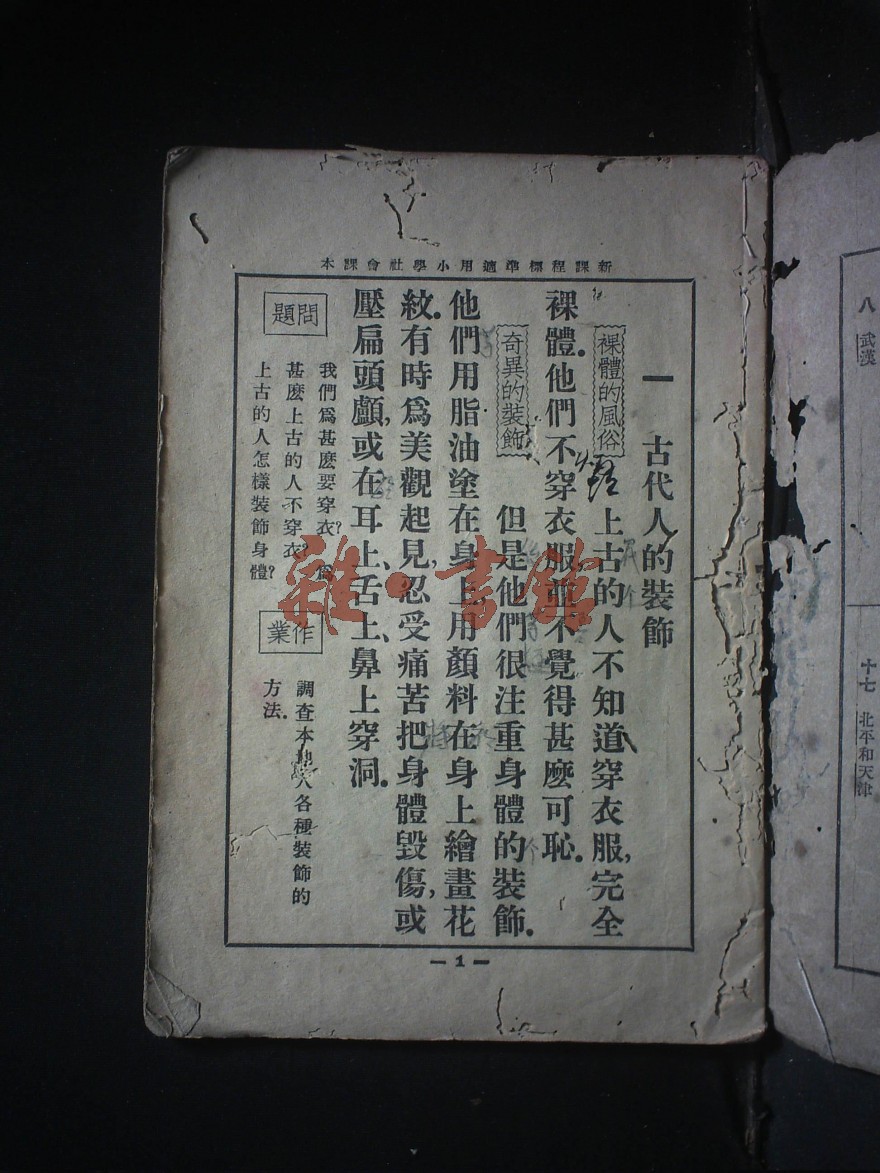 新課程標準適用小學社會課本
一 古代人的裝飾
裸體的風俗 上古的人不知道穿衣服，完全
裸體。他們不穿衣服，並不覺得甚麽可恥。
奇異的裝飾 但是他們很注重身體的裝飾。
他們用脂油塗在身上，用顏料在身上繪畫花
紋。有時爲美觀起見，忍受痛苦把身體毀傷，或
壓扁頭顱，或在耳上、舌上、鼻上穿洞。
問題
我們爲甚麽要穿衣？ 爲
甚麽上古的人不穿衣？
上古的人怎樣裝飾身體？
作業
調查本地人各種裝飾的
方法。
— 1 —
八 武漢
十七 北平和天津
雜·書館